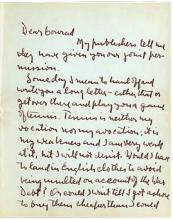 Dear Conrad
My publishers tell me
they have given you our joint per-
mission.
Some day I mean to hand off and
write you a long letter - either that or
get over there and play you a game
of tennis. Tennis is neither my
vocation nor my avocation; it is
my weakness and I am very weak
at it, but I will not desist. Would I have
to land in English clothes to avoid
being insulted on account of the
Debt? Or could I wait till I got ashore
to buy them cheaper than I could